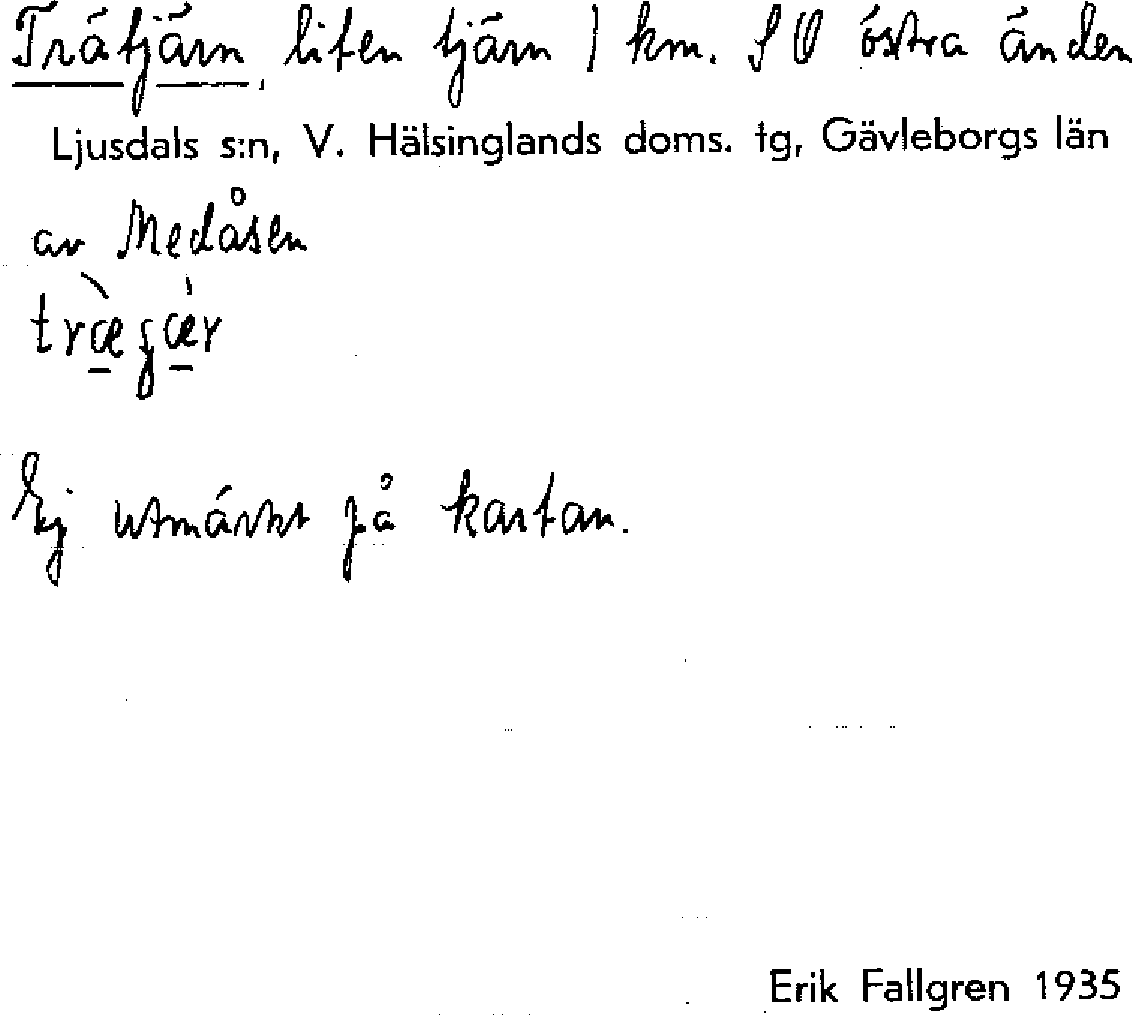 Trätjärn, liten tjärn 1 km. SO östra änden
Ljusdals s:n, V. Hälsinglands doms. tg, Gävleborgs län
av Medåsen
Ej utmärkt på kartan.
Erik Fallgren 1935